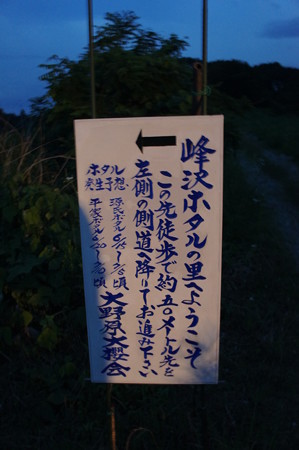 峰沢ホタルの里へようこそ
この先徒歩で約五〇メートル先を
左側の側道へ降りてお進み下さい
ホタル
発生予想
源氏ホタル 6/15〜7/5頃
平家ホタル
大野原大櫻会